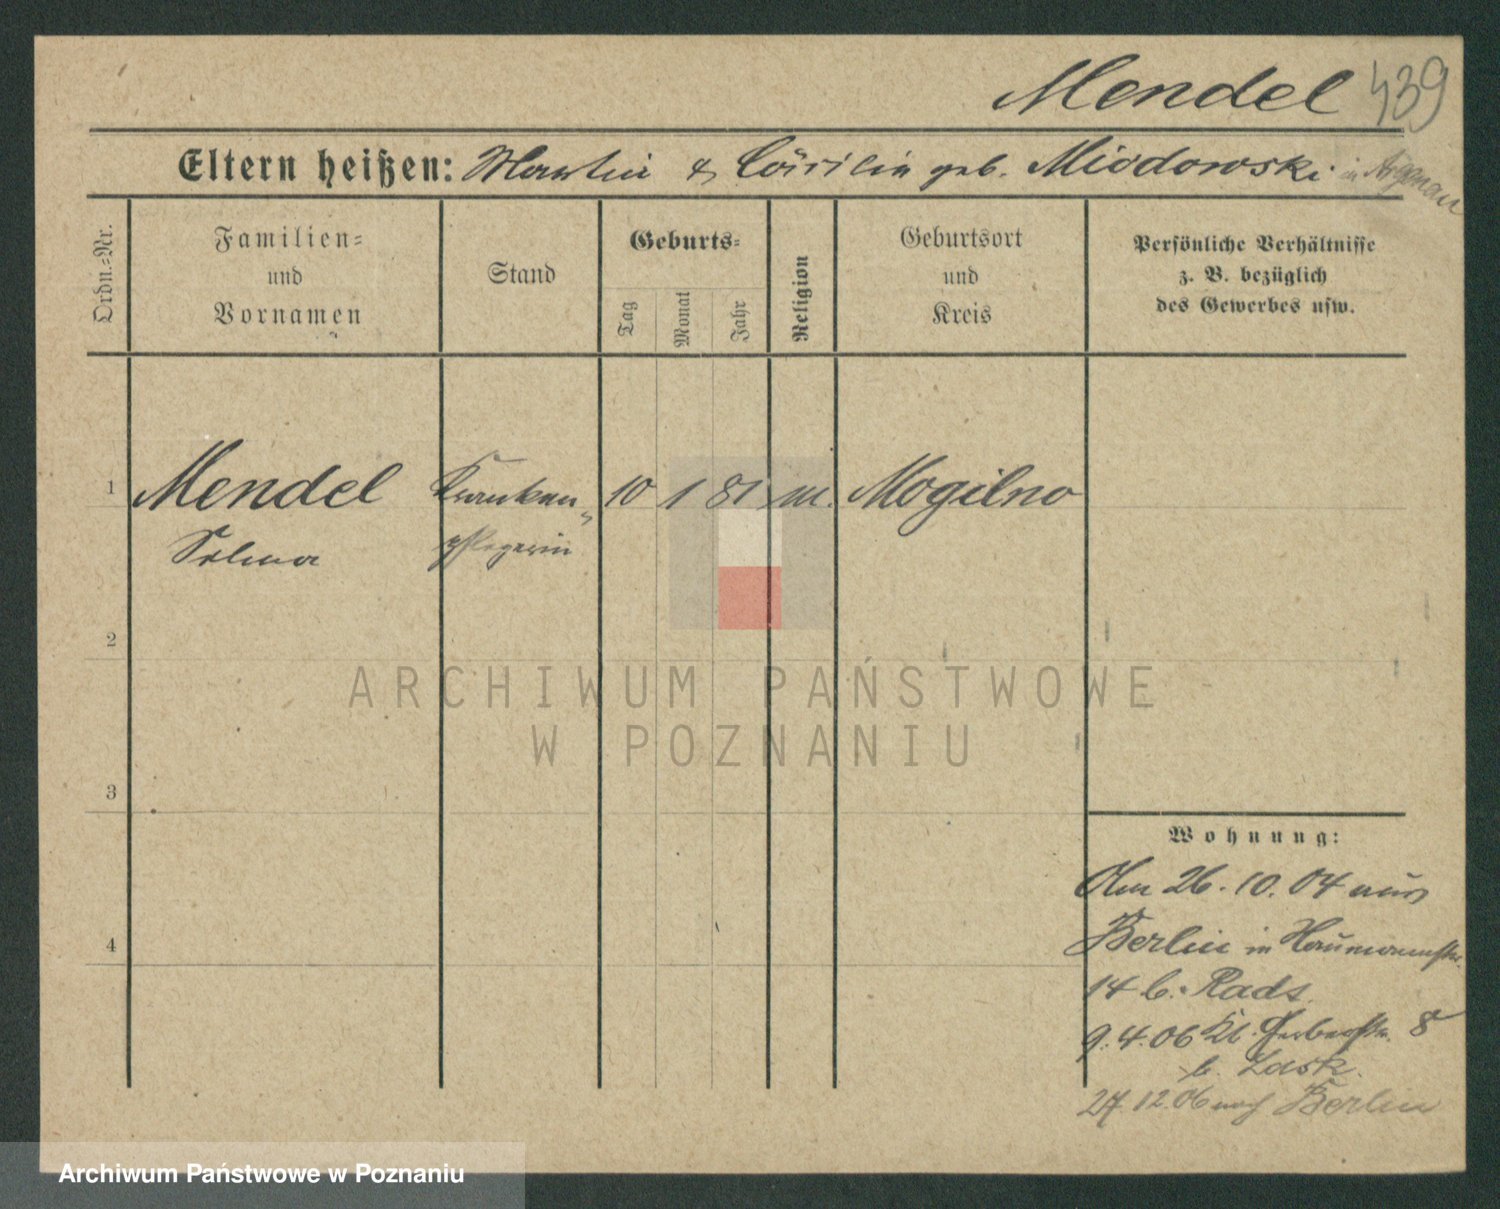 Mendel 439
Eltern heißen: Martin & Cäcilie geb. Miodowski in Argenau
Ordn.-Nr.
Familien-
und
Vornamen
Stand
Geburts-
Tag
Monat
Jahr
Religion
Geburtsort
und
Kreis
Persönliche Verhältnisse
z. B. bezüglich
des Gewerbes usw.
1 Mendel Kranken- 10 1 81 m. Mogilno
Selma pflegerin
2
ARCHIWUM PAŃSTWOWE
W POZNANIU
3
Wohnung:
Am 26.10.04 aus
4
Berlin in Naumannstr.
14 b. Rads.
9.4.06 Kl. Gerberstr. 8
b. Lask.
27.12.06 nach Berlin
Archiwum Państwowe w Poznaniu